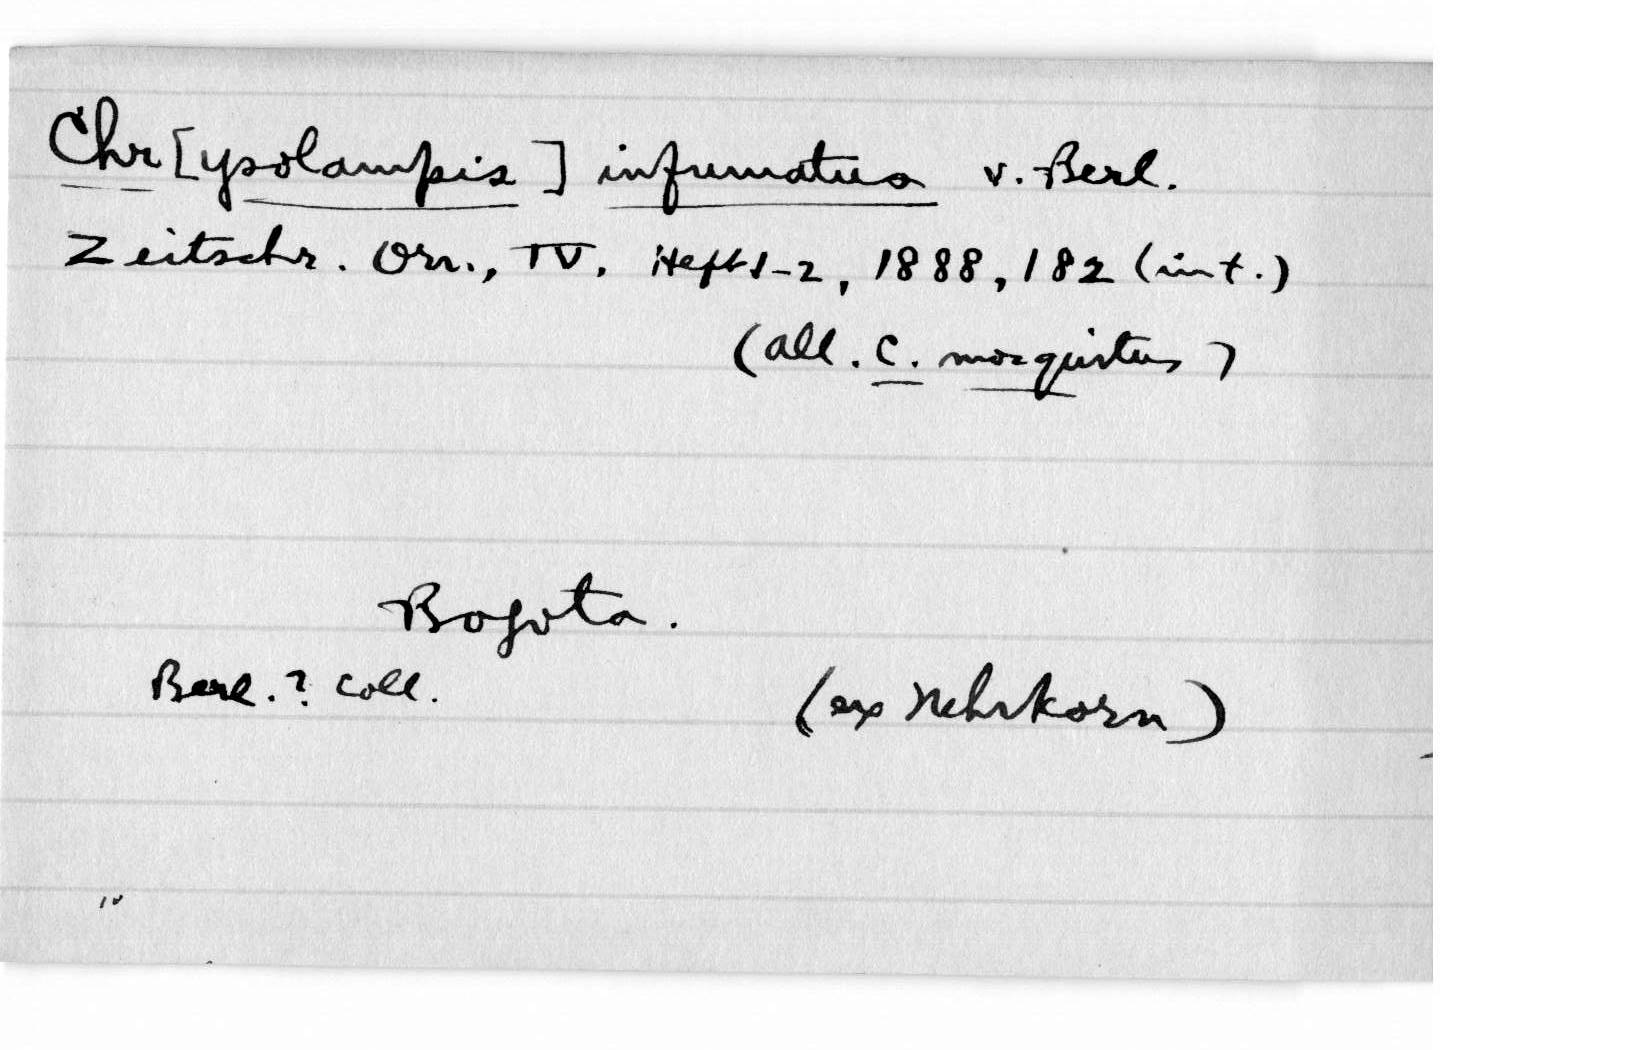 Chr[ysolampis] infumatus v. Berl.
Zeitschr. Orn., IV, Heft 1-2, 1888, 182 (int.)
(all. C. mosquitus)
Bogota.
Berl.? Coll.
(ex Nehrkorn)